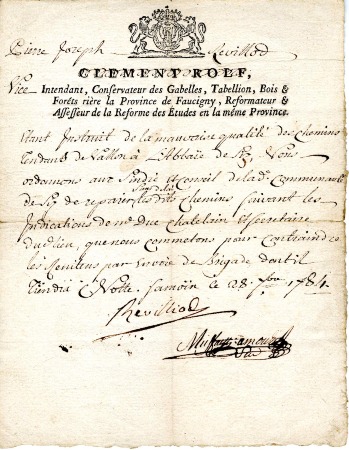 Pierre Joseph Revilliod
CLEMENT ROLF,
Vice
Intendant, Conservateur des Gabelles, Tabellion, Bois &
Forêts rière la Province de Faucigny, Reformateur &
Assesseur de la Reforme des Études en la même Province.
Etant Instruit de la mauvaise qualité des Chemins
tendant de Vallon à L'Abbaïe de Sixt, Nous
ordonnons aux Sindic et Conseil de la de. Communauté
de Sixt de reparer les dits chemins suivant les
Indications de me. Duc Chatelain et secretaire
du d. lieu, que nous commetons pour Contraindre
les par la voie de Brigade dont il
tiendra Notte. Samoën le 28. 7bre 1784.
Revilliod